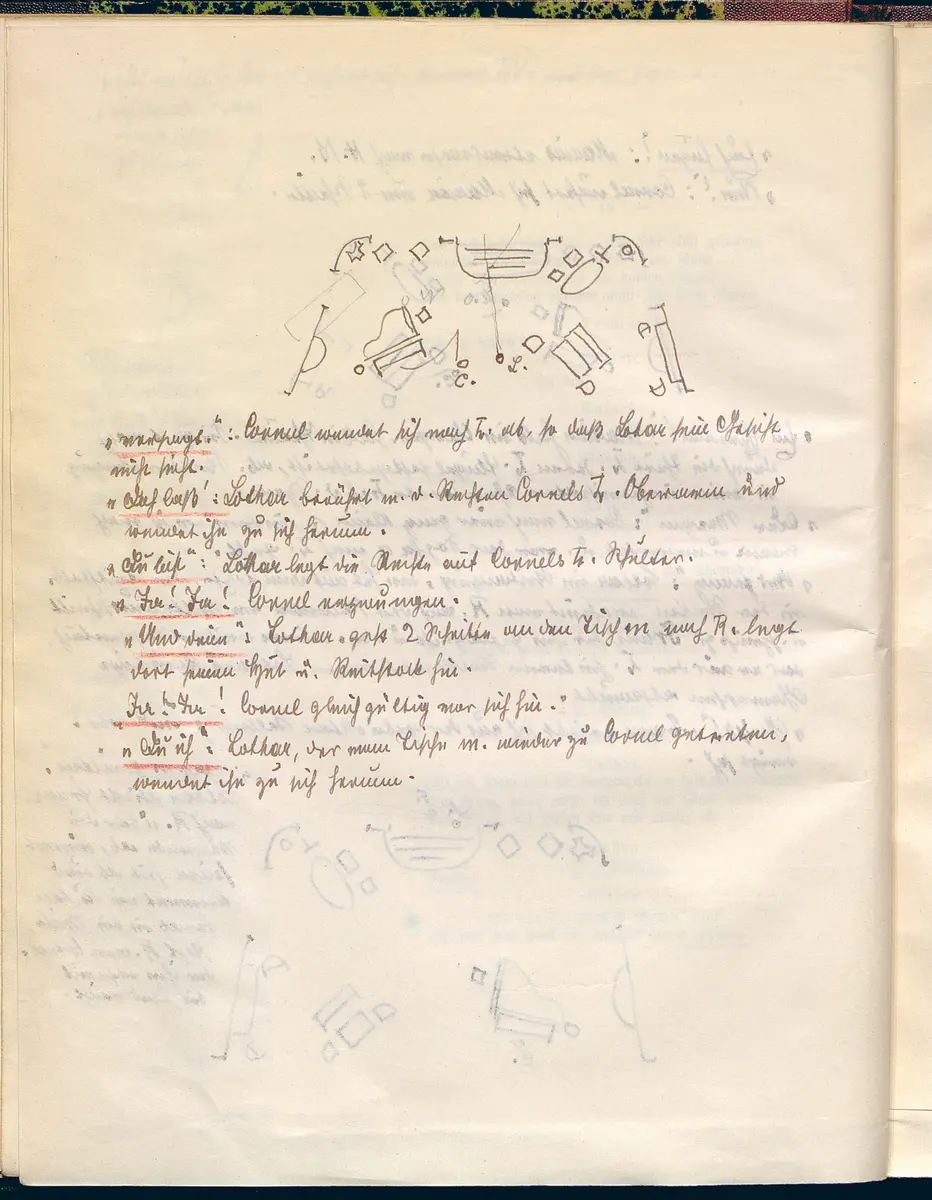 C. L.
„versagt.“: Cornel wendet sich nach L. ab, so daß Lotar sein Gesicht
nicht sieht.
„Ach laß“: Lothar berührt m. d. Rechten Cornels L. Oberarm und
wendet ihn zu sich herum.
„Du bist“: Lothar legt die Rechte auf Cornels L. Schulter.
„Ja! Ja! Cornel erzwungen.
„Und dann“: Lothar geht 2 Schritte an den Tisch m. nach R. legt
dort seinen Hut u. Reitstock hin.
Ja! Ja! Cornel gleichgültig vor sich hin.“
„Du ich“: Lothar, der vom Tische m. wieder zu Cornel getreten,
wendet ihn zu sich herum.